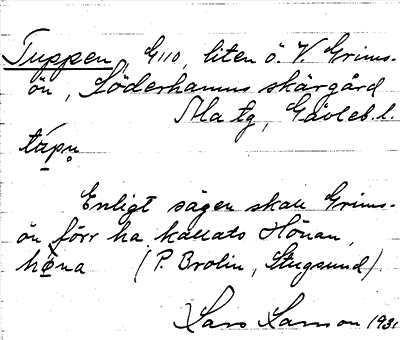 Tuppen, G110, liten ö. V. Grims-
ön, Söderhamns skärgård
Ala tg, Gävleb. l.
tápu̥
Enligt sägen skall Grims-
ön förr ha kallats Hönan,
høna (P. Brolin, Stugsund)
Lars Larsson 1931